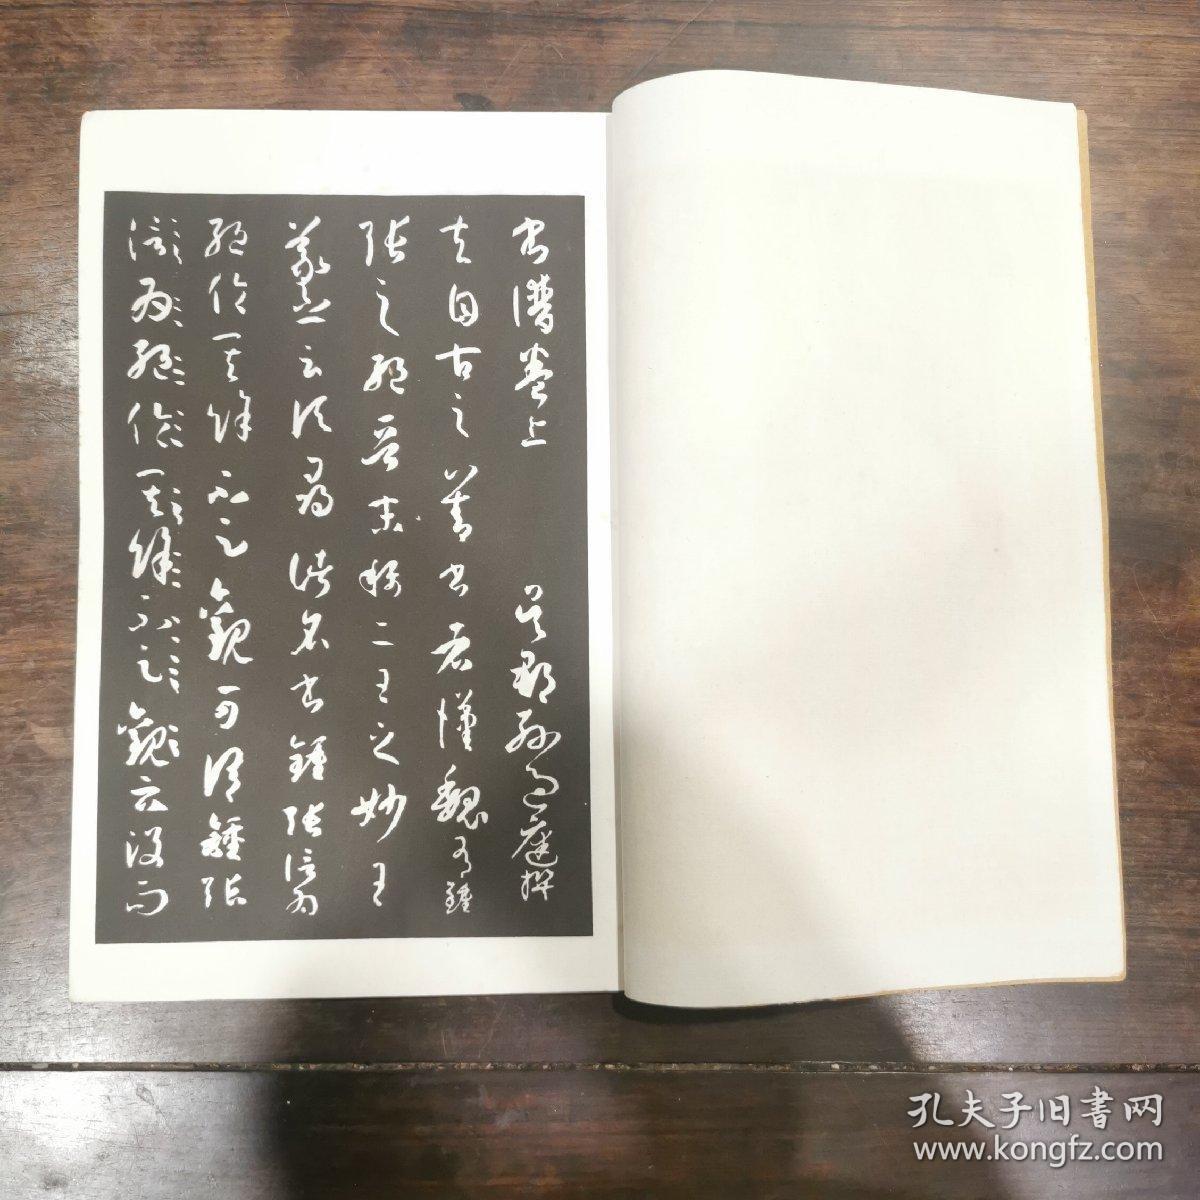 書譜卷上 吳郡孫過庭撰
夫自古之善書者漢魏有鍾
張之絕晉末稱二王之妙王
羲之云頃尋諸名書鍾張信為
絕倫其餘不足觀可謂鍾張
信為絕倫其餘不足觀云沒而
孔夫子旧書网
www.kongfz.com